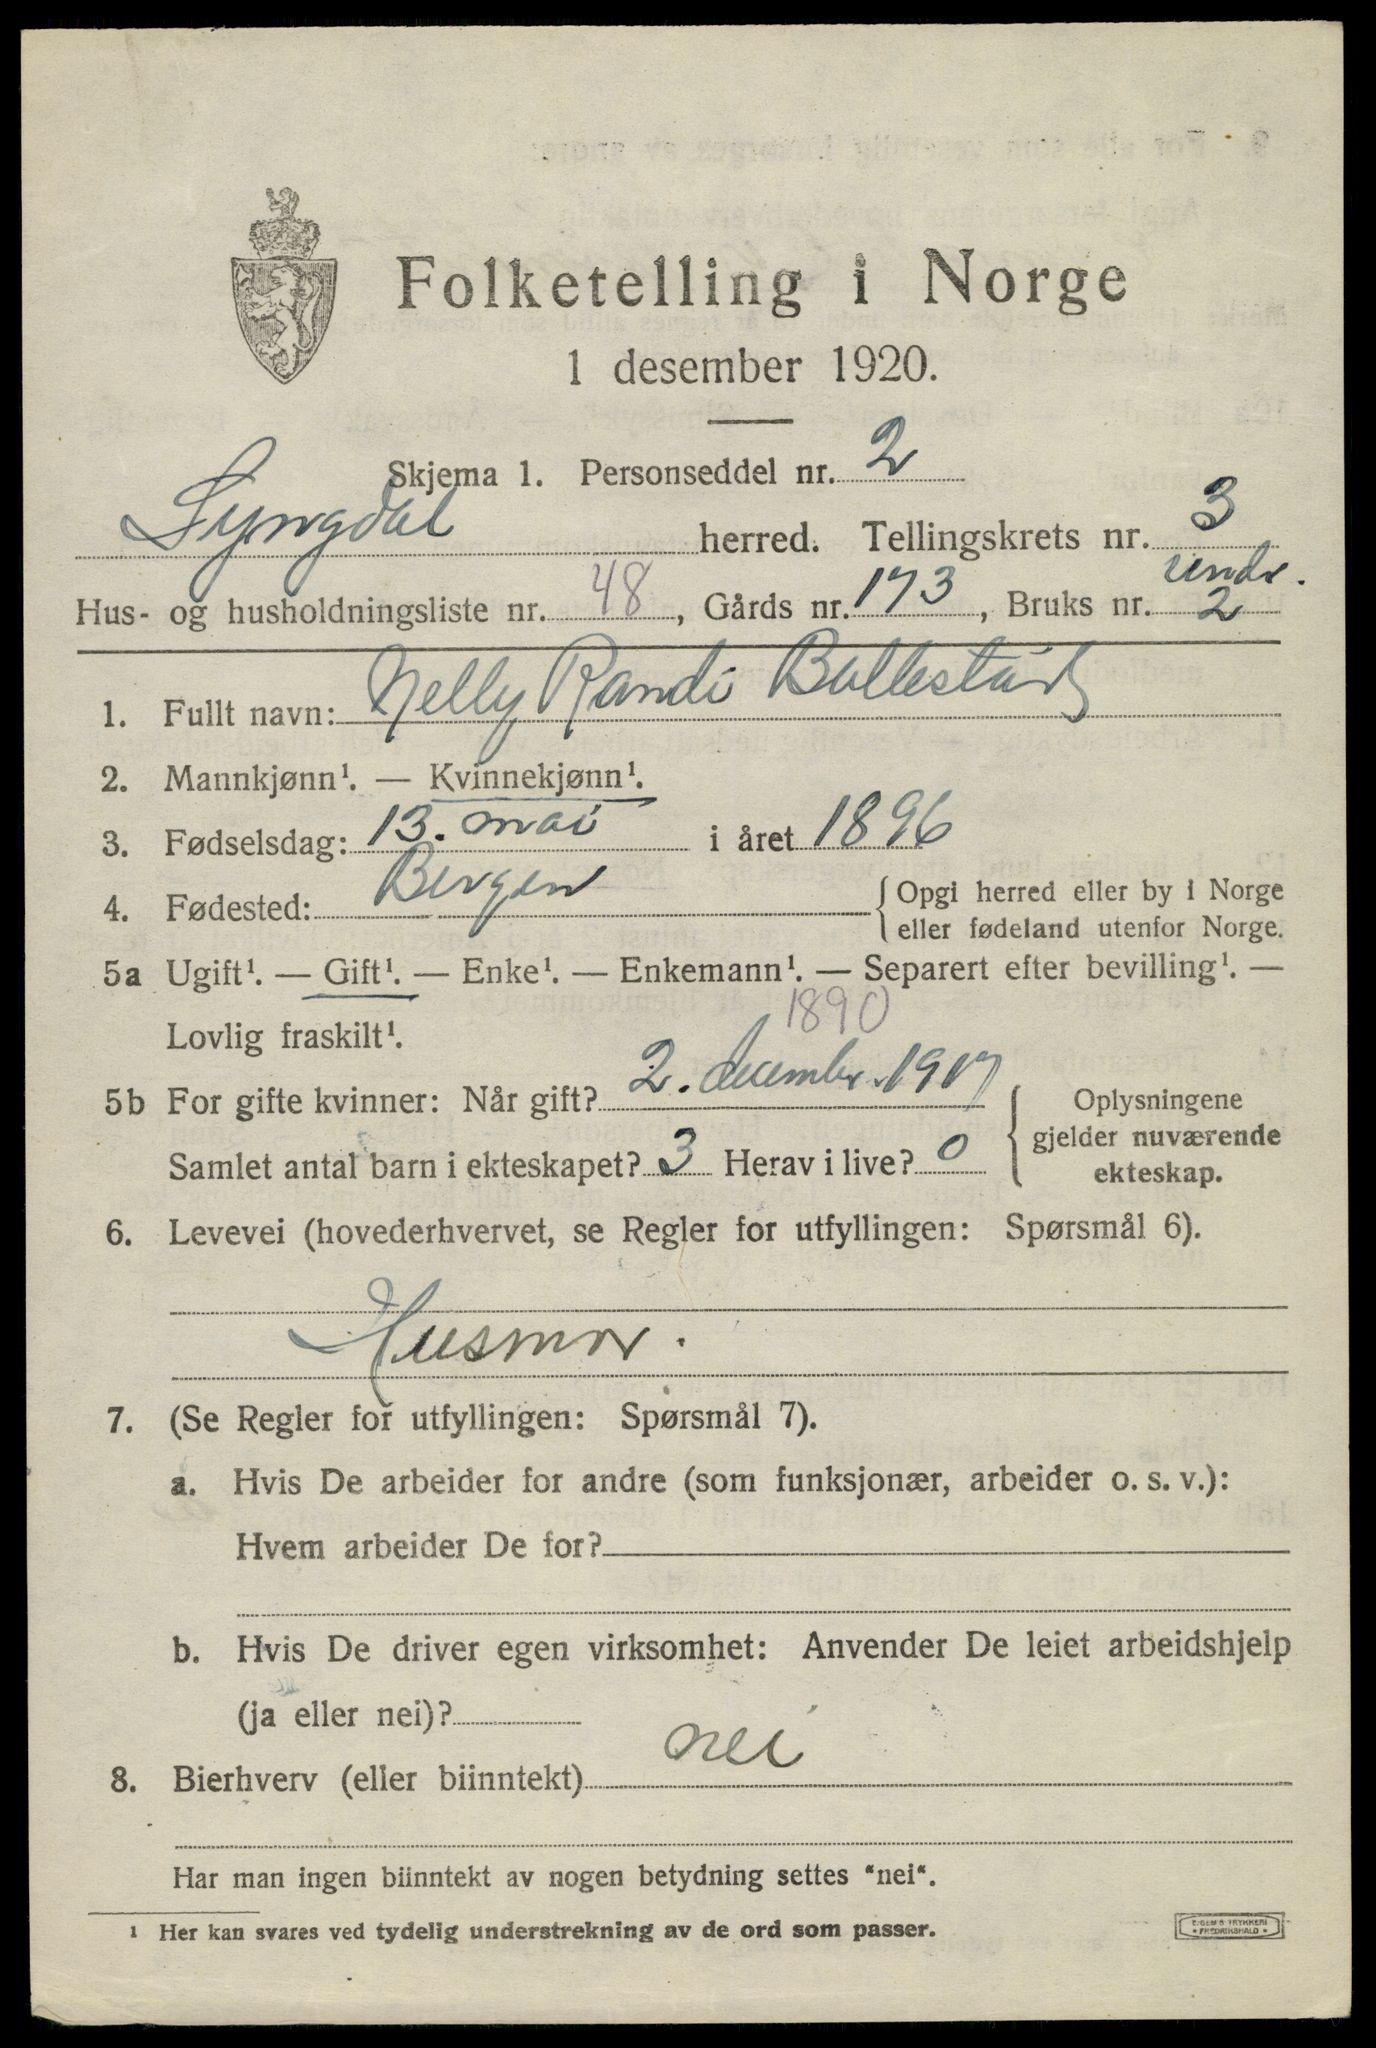 Folketelling i Norge
1 desember 1920.
Skjema 1. Personseddel nr. 2
Lyngdal herred. Tellingskrets nr. 3
undr.
Hus- og husholdningsliste nr. 48, Gårds nr. 173, Bruks nr. 2
1. Fullt navn: Nelly Randi Bullestad
2. Mannkjønn¹. — Kvinnekjønn¹.
3. Fødselsdag: 13. mai i året 1896
4. Fødested: Bergen {Opgi herred eller by i Norge
eller fødeland utenfor Norge.
5a Ugift¹. — Gift¹. — Enke¹. — Enkemann¹. — Separert efter bevilling¹. —
Lovlig fraskilt¹. 1890
5b For gifte kvinner: Når gift? 2. december 1917
Samlet antal barn i ekteskapet? 3 Herav i live? 0
{Oplysningene
gjelder nuværende
ekteskap.
6. Levevei (hovederhvervet, se Regler for utfyllingen: Spørsmål 6).
Husmor.
7. (Se Regler for utfyllingen: Spørsmål 7).
a. Hvis De arbeider for andre (som funksjonær, arbeider o. s. v.):
Hvem arbeider De for?
b. Hvis De driver egen virksomhet: Anvender De leiet arbeidshjelp
(ja eller nei)?
8. Bierhverv (eller biinntekt) nei
Har man ingen biinntekt av nogen betydning settes "nei".
¹ Her kan svares ved tydelig understrekning av de ord som passer.
E. SEM'S TRYKKERI
• FREDRIKSHALD •